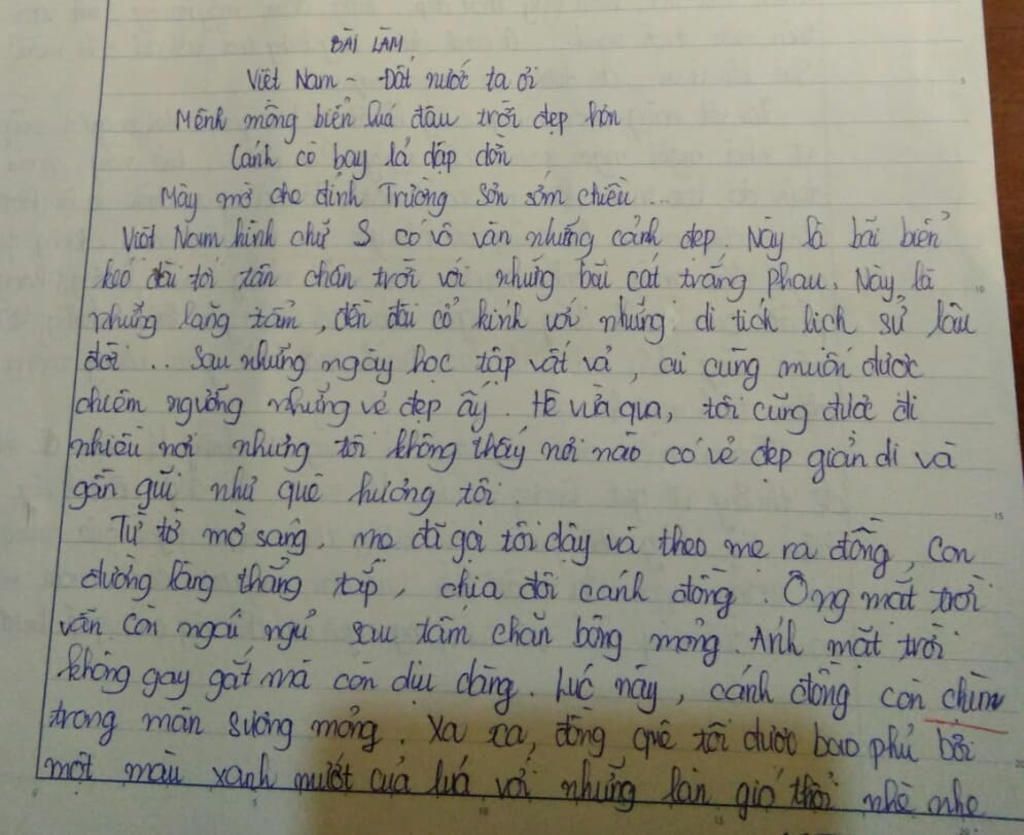 BÀI LÀM
Việt Nam - Đất nước ta ơi
Mênh mông biển lúa đâu trời đẹp hơn
Cánh cò bay lả dập dờn
Mây mờ che đỉnh Trường Sơn sớm chiều...
Việt Nam hình chữ S có vô vàn những cảnh đẹp. Này là bãi biển
kéo dài tới tận chân trời với những bãi cát trắng phau. Này là
những lăng tẩm, đền đài cổ kính với những di tích lịch sử lâu
đời... Sau những ngày học tập vất vả, ai cũng muốn được
chiêm ngưỡng những vẻ đẹp ấy. Hè vừa qua, tôi cũng được đi
nhiều nơi nhưng tôi không thấy nơi nào có vẻ đẹp giản dị và
gần gũi như quê hương tôi.
Từ tờ mờ sáng, mẹ đã gọi tôi dậy và theo mẹ ra đồng, con
đường làng thẳng tắp, chia đôi cánh đồng. Ông mặt trời
vẫn còn ngái ngủ sau tấm chăn bông mỏng. Ánh mặt trời
không gay gắt mà còn dịu dàng. Lúc này, cánh đồng còn chìm
trong màn sương mỏng. Xa xa, đồng quê tôi được bao phủ bởi
một màu xanh mướt của lúa với những làn gió thổi nhè nhẹ